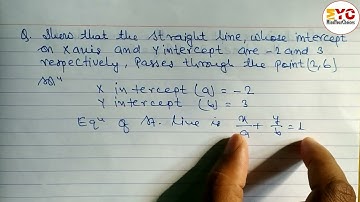 Q. Show that the straight line, whose intercept
on X axis and Y intercept are -2 and 3
respectively, passes through the point (2, 6)
Solⁿ
X intercept (a) = -2
Y intercept (b) = 3
Eqⁿ of st. line is x/a + y/b = 1
EYC